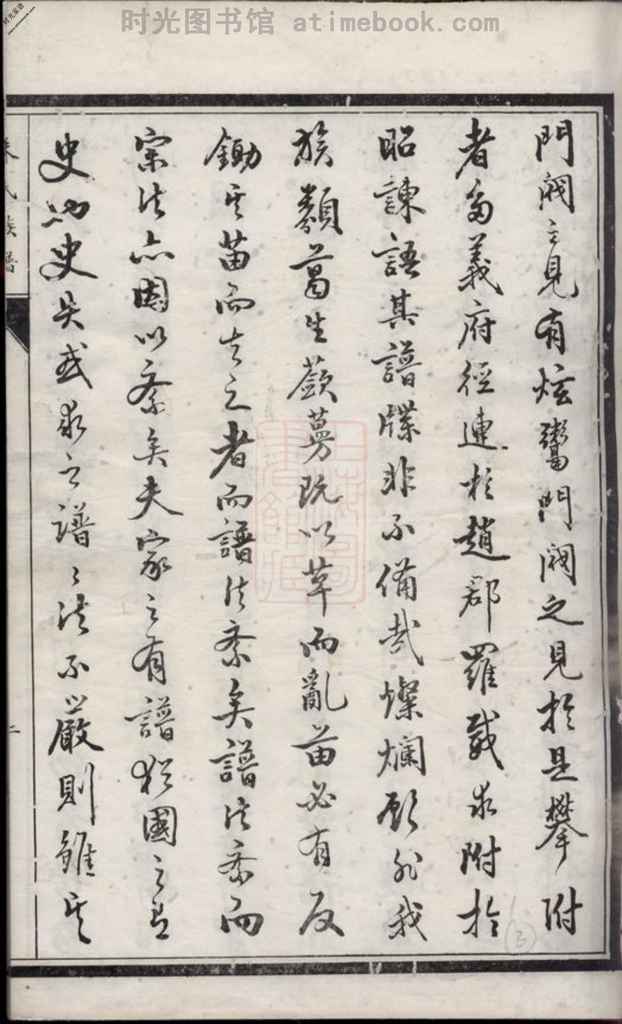 时光图书馆 atimebook.com
門閥之見有炫鬻門閥之見於是攀附
者多義府徑連於趙郡羅威求附於
昭諫語其譜牒非不備哉燦爛顧非我
族類葛生蔹蔓既以草而亂苗必有反
鋤其苗而去之者而譜法紊矣譜法紊而
宗法亦因以紊矣夫家之有譜猶國之有
史也史失或求之譜譜法不嚴則雖其
氏族譜
二
3